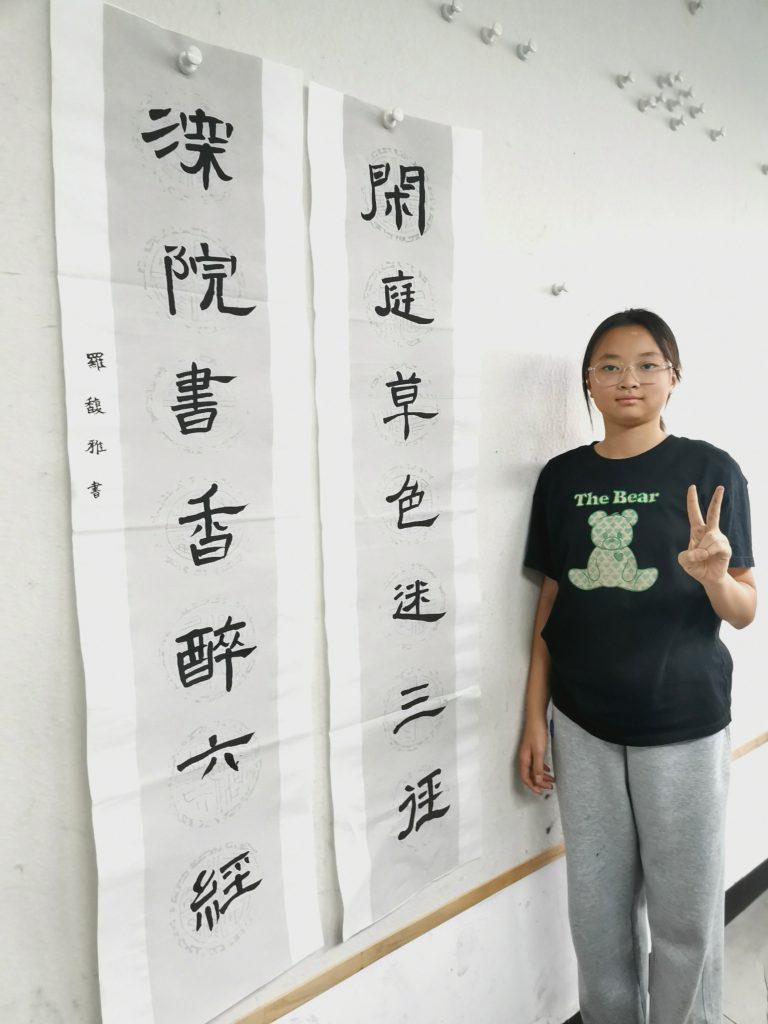 閑庭草色迷三徑
深院書香醉六經
羅馥雅書
The Bear